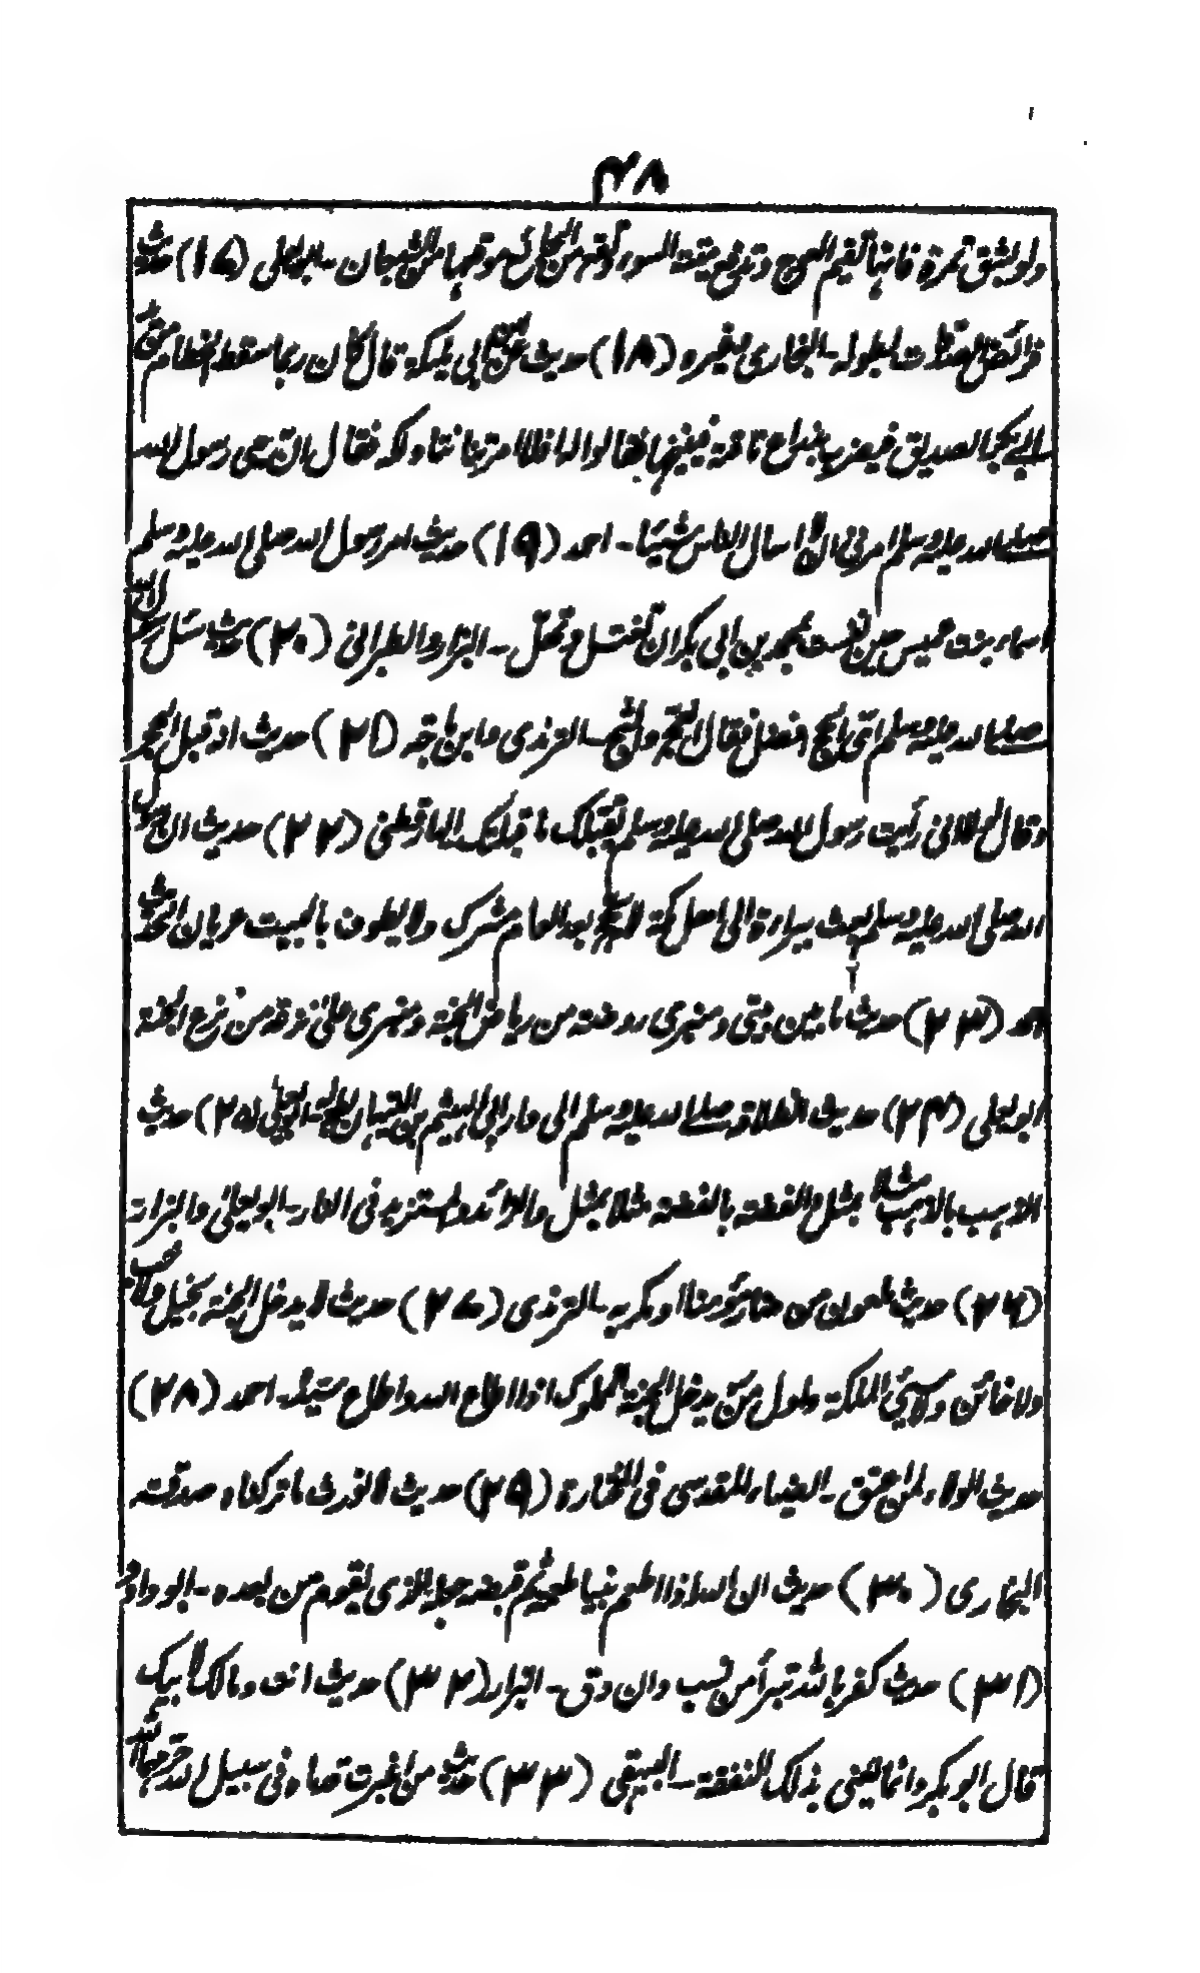 ۴۸
ولو بشق تمرة فانها تقيم العوج وتدفع ميتة السوء وتقع من الجائع موقعها من الشبعان - ابو يعلى (۱۷) حديث
فرائض الصدقات بطوله - البخاری وغيره (۱۸) حديث عن ابن ابی مليكة قال كان ربما سقط الخطام من يد
ابی بكر الصديق فيضرب بذراع ناقته فينيخها فقالوا له افلا امرتنا نناولكه فقال ان حبی رسول الله
صلے الله عليه وسلم امرنی ان لا اسال الناس شيئا - احمد (۱۹) حديث امر رسول الله صلی الله عليه وسلم
اسماء بنت عميس حين نفست بمحمد بن ابی بكر ان تغتسل وتهل - البزار والطبرانی (۲۰) حديث سئل رسول الله
صلے الله عليه وسلم ای الحج افضل فقال العج والثج - الترمذی وابن ماجه (۲۱) حديث انه قبل الحجر
وقال لولا انی رأيت رسول الله صلی الله عليه وسلم يقبلك ما قبلتك - الدارقطنی (۲۲) حديث ان رسول
الله صلی الله عليه وسلم بعث ببراءة الی اهل مكة لا يحج بعد العام مشرك ولا يطوف بالبيت عريان الحديث
احمد (۲۳) حديث ما بين بيتی ومنبری روضة من رياض الجنة ومنبری علی ترعة من ترع الجنة
ابو يعلی (۲۴) حديث انطلاقه صلے الله عليه وسلم الی دار ابی الهيثم بن التيهان بطوله - ابو يعلی (۲۵) حديث
الذهب بالذهب مثلا بمثل والفضة بالفضة مثلا بمثل والزائد والمستزيد فی النار - ابو يعلی والبزار
(۲۶) حديث ملعون من ضار مؤمنا او مكر به - الترمذی (۲۷) حديث لا يدخل الجنة بخيل ولا خب
ولا خائن ولا سيئ الملكة واول من يدخل الجنة المملوك اذا اطاع الله واطاع سيده - احمد (۲۸)
حديث الولاء لمن اعتق - الضياء المقدسی فی المختارة (۲۹) حديث لا نورث ما تركناه صدقة
البخاری (۳۰) حديث ان الله اذا اطعم نبيا طعمة ثم قبضه جعله للذی يقوم من بعده - ابو داؤد
(۳۱) حديث كفر بالله تبرأ من نسب وان دق - البزار (۳۲) حديث انت ومالك لابيك
قال ابو بكر وانما يعنی بذلك النفقة - البيهقی (۳۳) حديث من اغبرت قدماه فی سبيل الله حرمهما الله